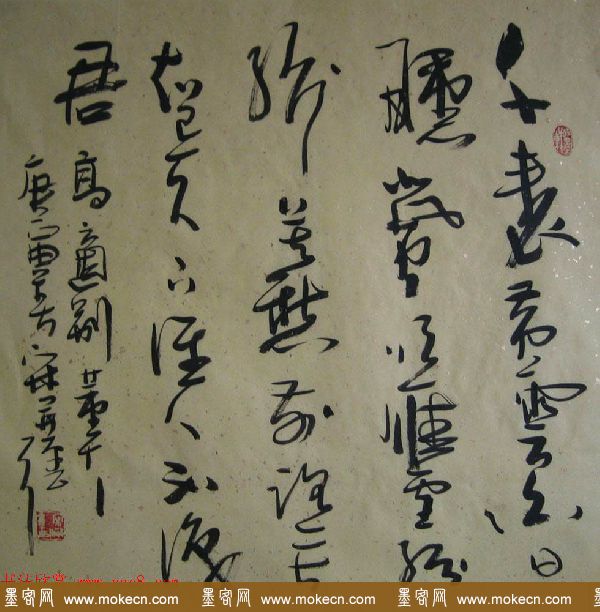 千里黄雲白日
曛北風吹雁雪紛
紛莫愁前路無
知己天下誰人不識
君 高適別董
庚寅
墨客网 www.mokecn.com 墨客网 www.mokecn.com 墨客网 www.mokecn.com